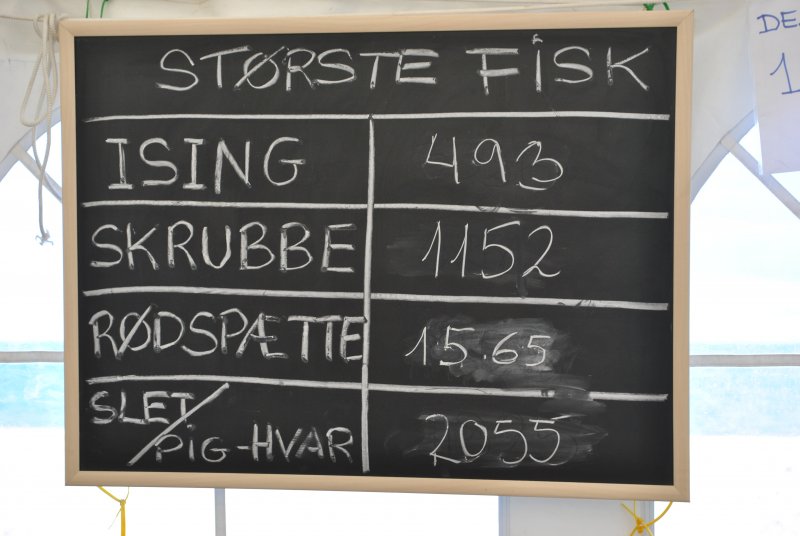 STØRSTE FISK
ISING 493
SKRUBBE 1152
RØDSPÆTTE 15.65
SLET/PIG-HVAR 2055
DE
1